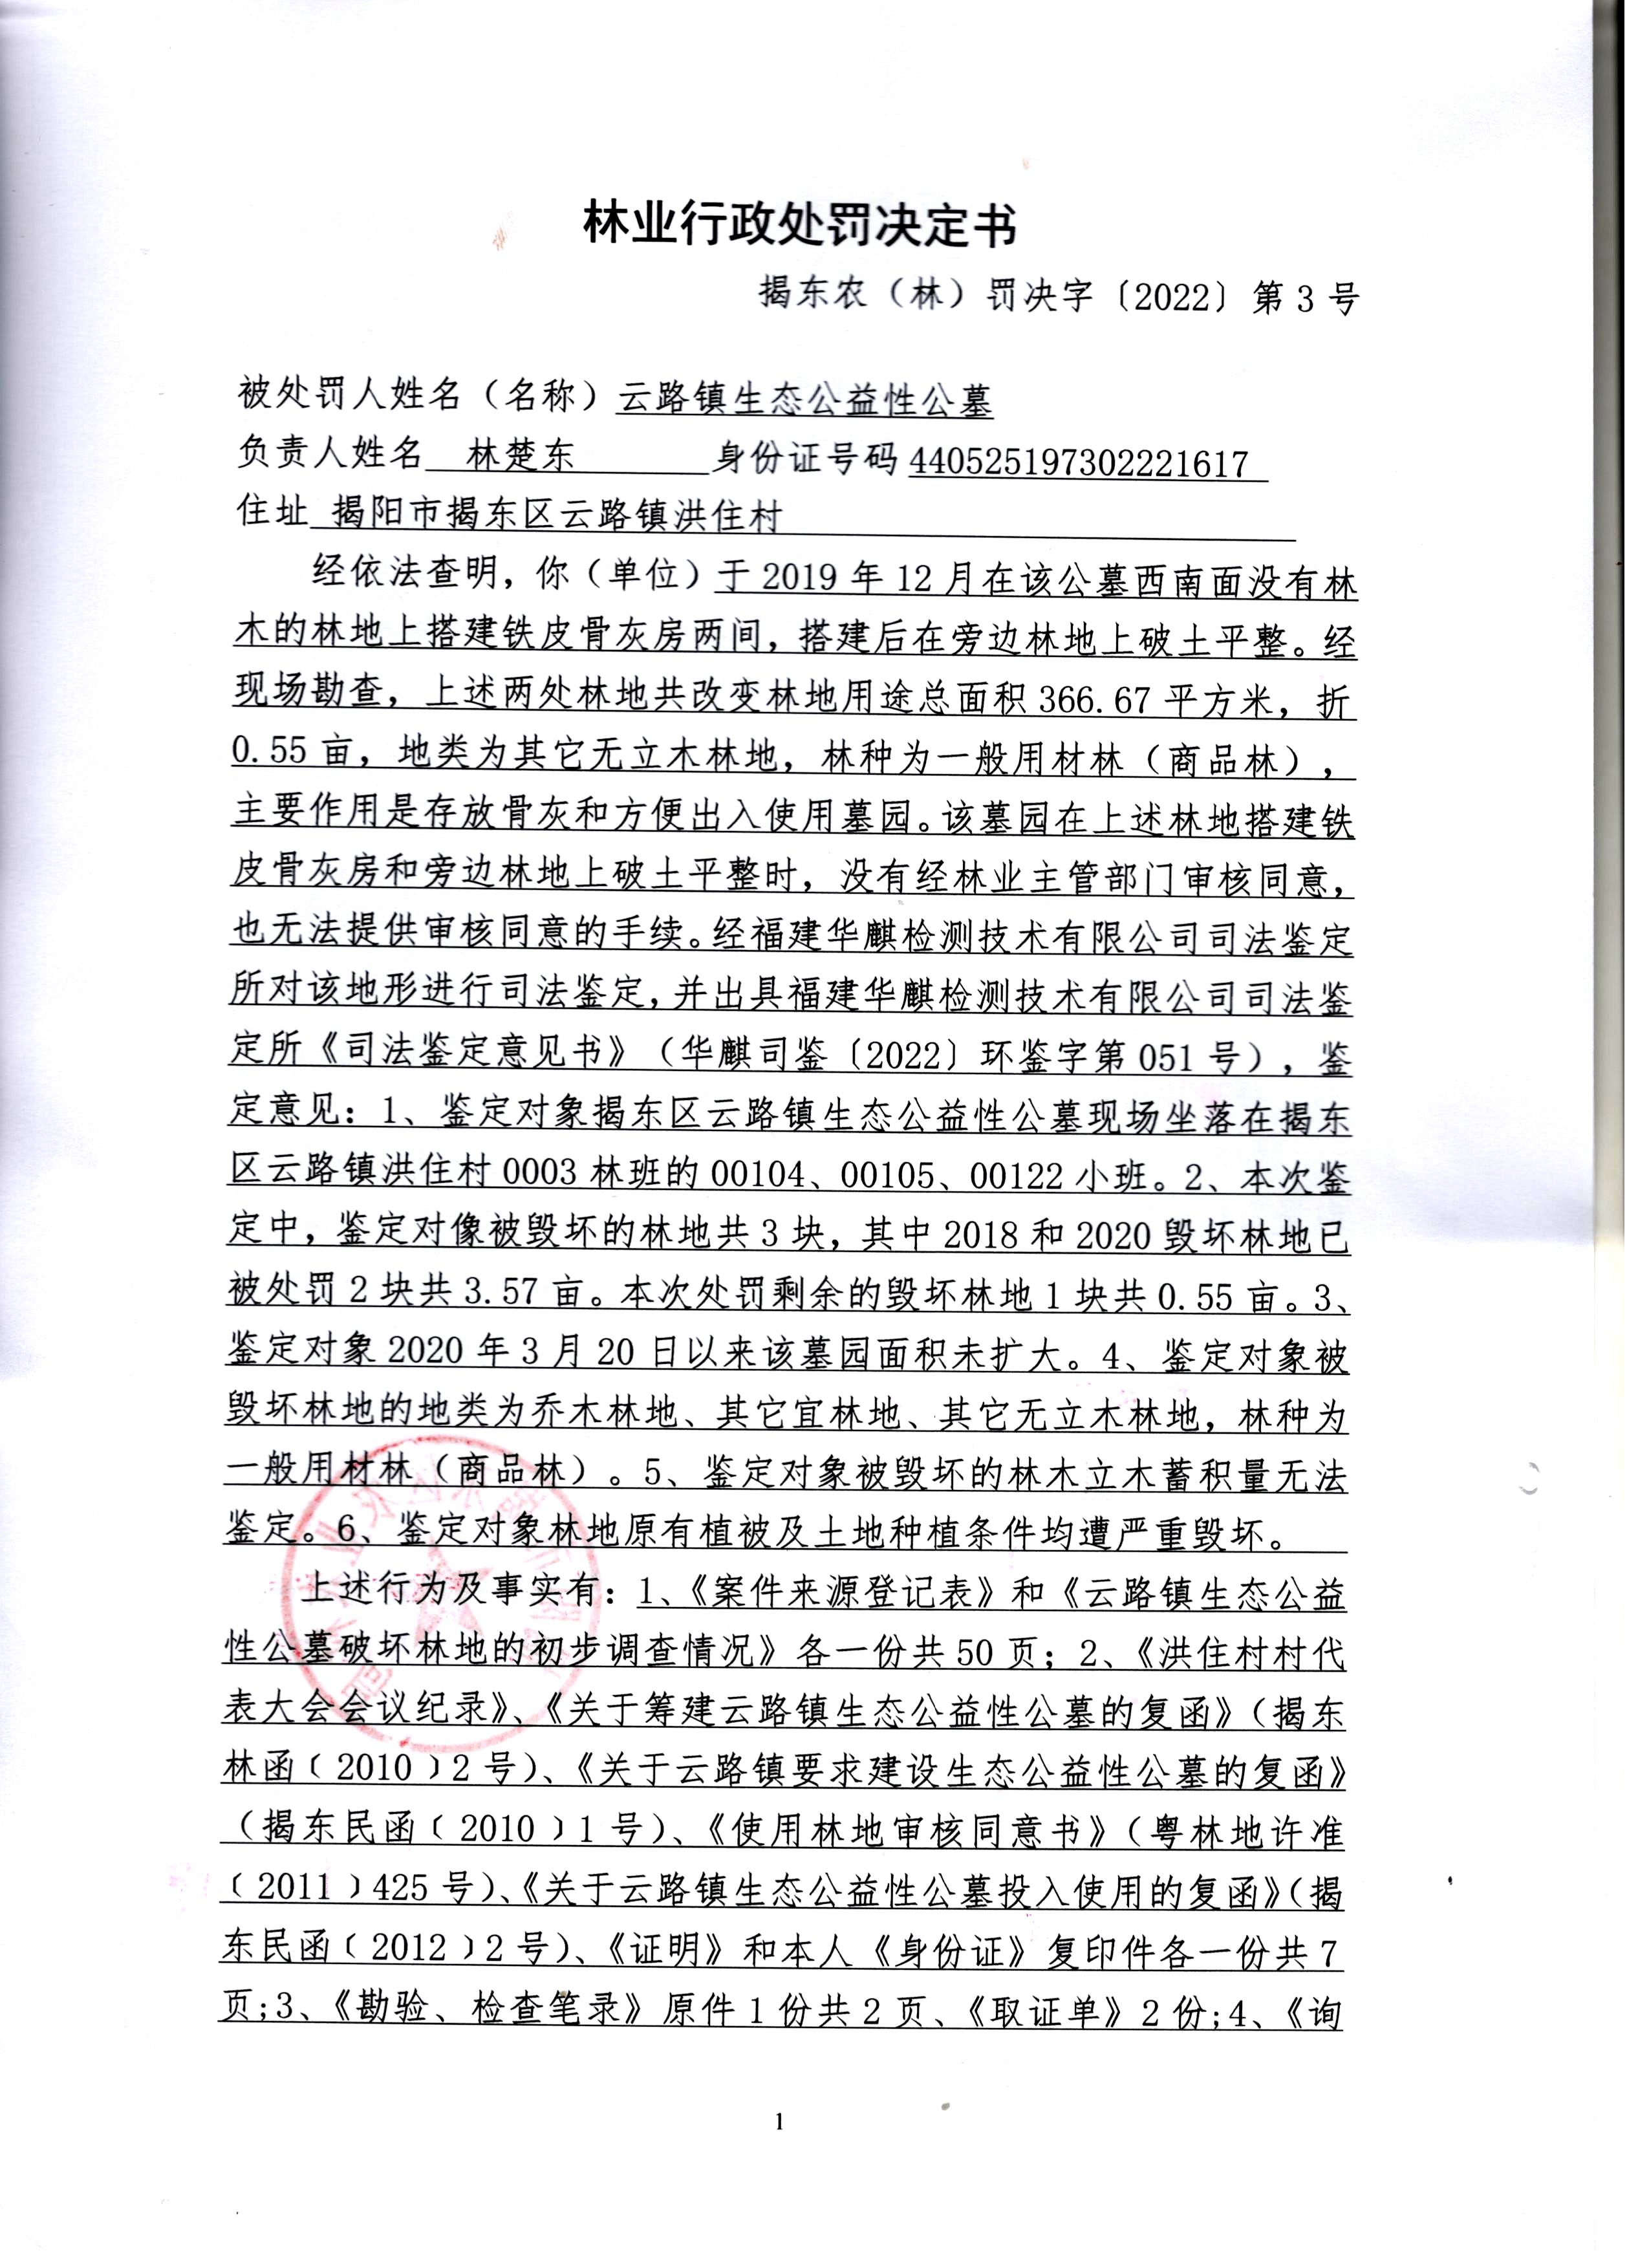 林业行政处罚决定书
揭东农（林）罚决字〔2022〕第3号
被处罚人姓名（名称）云路镇生态公益性公墓
负责人姓名 林楚东 身份证号码 440525197302221617
住址 揭阳市揭东区云路镇洪住村
经依法查明，你（单位）于2019年12月在该公墓西南面没有林
木的林地上搭建铁皮骨灰房两间，搭建后在旁边林地上破土平整。经
现场勘查，上述两处林地共改变林地用途总面积366.67平方米，折
0.55亩，地类为其它无立木林地，林种为一般用材林（商品林），
主要作用是存放骨灰和方便出入使用墓园。该墓园在上述林地搭建铁
皮骨灰房和旁边林地上破土平整时，没有经林业主管部门审核同意，
也无法提供审核同意的手续。经福建华麒检测技术有限公司司法鉴定
所对该地形进行司法鉴定，并出具福建华麒检测技术有限公司司法鉴
定所《司法鉴定意见书》（华麒司鉴〔2022〕环鉴字第051号），鉴
定意见：1、鉴定对象揭东区云路镇生态公益性公墓现场坐落在揭东
区云路镇洪住村0003林班的00104、00105、00122小班。2、本次鉴
定中，鉴定对像被毁坏的林地共3块，其中2018和2020毁坏林地已
被处罚2块共3.57亩。本次处罚剩余的毁坏林地1块共0.55亩。3、
鉴定对象2020年3月20日以来该墓园面积未扩大。4、鉴定对象被
毁坏林地的地类为乔木林地、其它宜林地、其它无立木林地，林种为
一般用材林（商品林）。5、鉴定对象被毁坏的林木立木蓄积量无法
鉴定。6、鉴定对象林地原有植被及土地种植条件均遭严重毁坏。
上述行为及事实有：1、《案件来源登记表》和《云路镇生态公益
性公墓破坏林地的初步调查情况》各一份共50页；2、《洪住村村代
表大会会议纪录》、《关于筹建云路镇生态公益性公墓的复函》（揭东
林函﹝2010﹞2号）、《关于云路镇要求建设生态公益性公墓的复函》
（揭东民函﹝2010﹞1号）、《使用林地审核同意书》（粤林地许准
﹝2011﹞425号）、《关于云路镇生态公益性公墓投入使用的复函》（揭
东民函﹝2012﹞2号）、《证明》和本人《身份证》复印件各一份共7
页;3、《勘验、检查笔录》原件1份共2页、《取证单》2份;4、《询
1